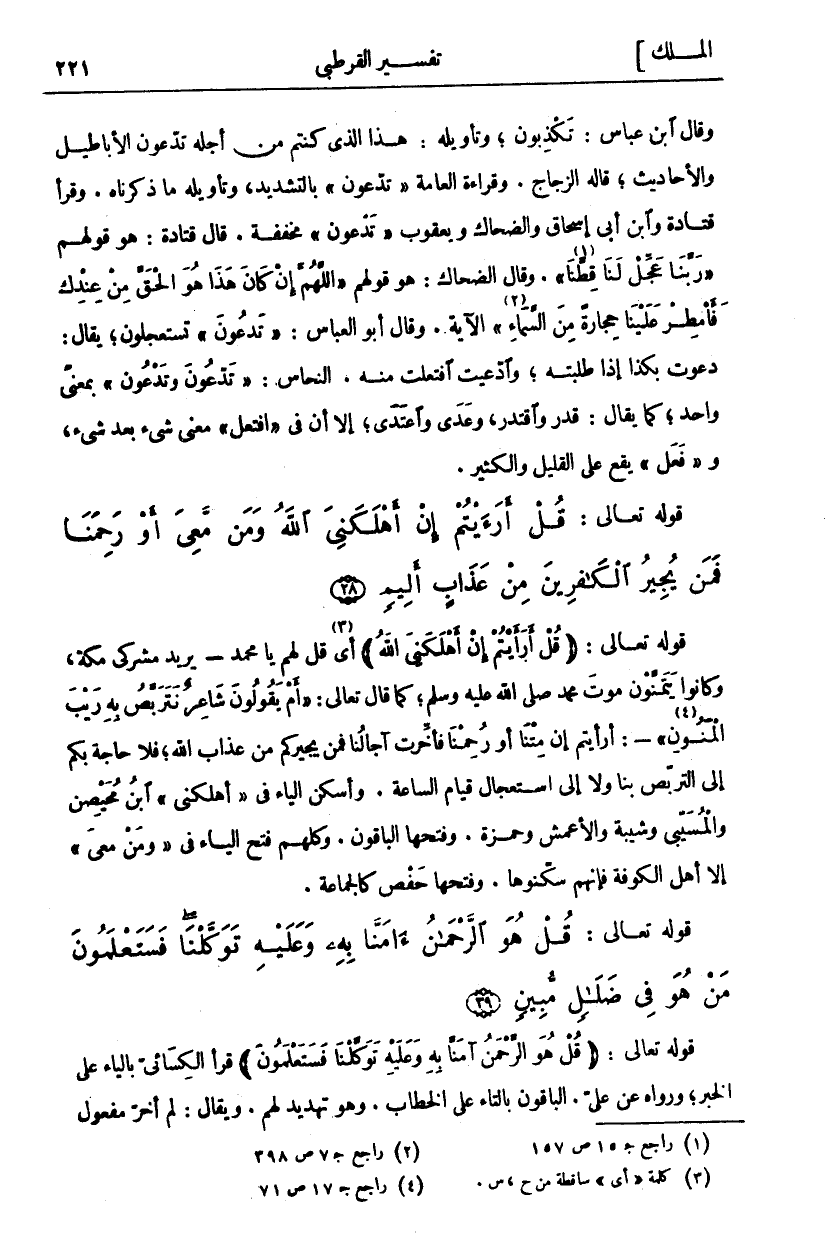 الملك ] تفسير القرطبى ٢٢١
وقال ٱبن عباس : تَكْذِبون ؛ وتأويله : هذا الذى كنتم من أجله تدّعون الأباطيل
والأحاديث ؛ قاله الزجاج . وقراءة العامة « تدّعون » بالتشديد، وتأويله ما ذكرناه . وقرأ
قتادة وٱبن أبى إسحاق والضحاك ويعقوب « تَدْعون » مخففة . قال قتادة : هو قولهم
«رَبَّنَا عَجِّلْ لَنَا قِطَّنَا» (١) . وقال الضحاك : هو قولهم «اللَّهُمَّ إِنْ كَانَ هَذَا هُوَ الْحَقَّ مِنْ عِنْدِكَ
فَأَمْطِرْ عَلَيْنَا حِجَارةً مِنَ السَّمَاءِ (٢) » الآية . وقال أبو العباس : « تَدعُونَ » تستعجلون؛ يقال:
دعوت بكذا إذا طلبته ؛ وٱدّعيت ٱفتعلت منه . النحاس : « تَدّعُونَ وتَدْعُون » بمعنًى
واحد ؛ كما يقال : قدر وٱقتدر، وعَدَى وٱعتَدَى؛ إلا أن فى «افتعل» معنى شىء بعد شىء،
و « فَعَل » يقع على القليل والكثير .
قوله تعالى : قُلْ أَرَءَيْتُمْ إِنْ أَهْلَكَنِىَ ٱللَّهُ وَمَن مَّعِىَ أَوْ رَحِمَنَا
فَمَن يُجِيرُ ٱلْكَـٰفِرِينَ مِنْ عَذَابٍ أَلِيمٍ ٢٨
قوله تعالى : ( قُلْ أَرَأَيْتُمْ إِنْ أَهْلَكَنِىَ اللهُ ) أى (٣) قل لهم يا محمد — يريد مشركى مكة،
وكانوا يَتَمَنَّوْن موتَ محمد صلى الله عليه وسلم؛ كما قال تعالى: «أَمْ يَقُولُونَ شَاعِرٌ نَتَرَبَّصُ بِهِ رَيْبَ
الْمَنُونِ (٤)» — : أرأيتم إن مِتْنَا أو رُحِمْنَا فأخّرت آجالُنا فمن يجيركم من عذاب الله؛ فلا حاجة بكم
إلى التربّص بنا ولا إلى استعجال قيام الساعة . وأسكن الياء فى « أهلكنى » ٱبنُ مُحَيْصِن
والْمُسَيّبى وشيبة والأعمش وحمزة . وفتحها الباقون . وكلهم فتح الياء فى « ومَنْ معىَ »
إلا أهل الكوفة فإنهم سكّنوها . وفتحها حَفْص كالجماعة .
قوله تعالى : قُلْ هُوَ ٱلرَّحْمَـٰنُ ءَامَنَّا بِهِۦ وَعَلَيْهِ تَوَكَّلْنَا ۖ فَسَتَعْلَمُونَ
مَنْ هُوَ فِى ضَلَـٰلٍ مُّبِينٍ ٢٩
قوله تعالى : ( قُلْ هُوَ الرَّحْمَنُ آمَنَّا بِهِ وَعَلَيْهِ تَوَكَّلْنَا فَسَتَعْلَمُونَ ) قرأ الكِسَائىّ بالياء على
الخبر؛ ورواه عن علىّ . الباقون بالتاء على الخطاب . وهو تهديد لهم . ويقال : لم أخرّ مفعول
(١) راجع جـ ١٥ ص ١٥٧ (٢) راجع جـ ٧ ص ٣٩٨
(٣) كلمة « أى » ساقطة من ح ، س . (٤) راجع جـ ١٧ ص ٧١